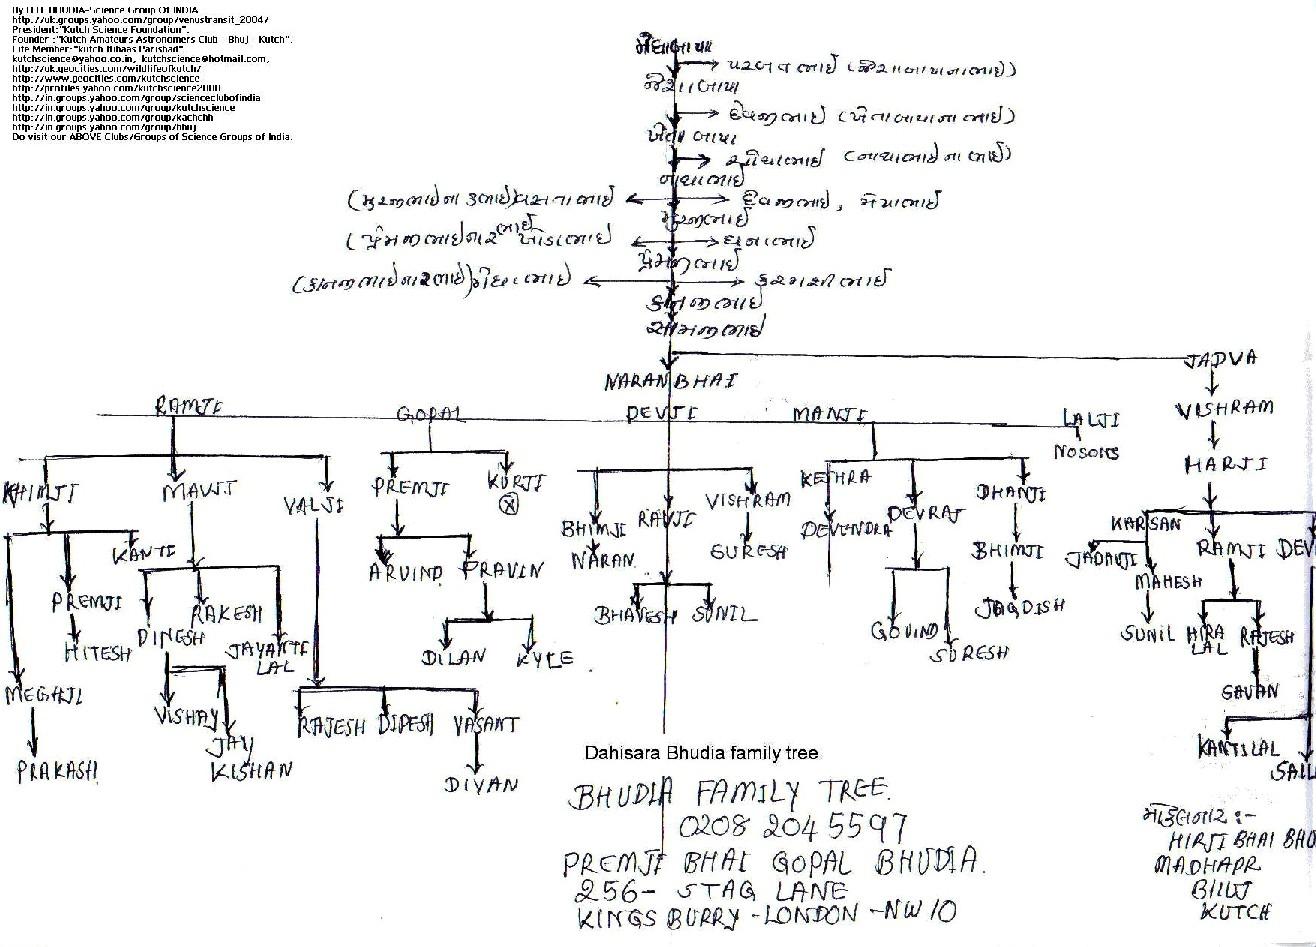 By LILE BHUDIA-Science Group Of INDIA
http://uk.groups.yahoo.com/group/venustransit_2004/
President:"Kutch Science Foundation".
Founder :"Kutch Amateurs Astronomers Club - Bhuj - Kutch".
Life Member:"kutch Itihaas Parishad"
kutchscience@yahoo.co.in, kutchscience@hotmail.com,
http://uk.geocities.com/wildlifeofkutch/
http://www.geocities.com/kutchscience
http://profiles.yahoo.com/kutchscience2000
http://in.groups.yahoo.com/group/scienceclubofindia
http://in.groups.yahoo.com/group/kutchscience
http://in.groups.yahoo.com/group/kachchh
http://in.groups.yahoo.com/group/bhuj
Do visit our ABOVE Clubs/Groups of Science Groups of India.
મેઘાબાપા
પરબતભાઈ (જેશાબાપાનાભાઈ)
જેશાબાપા
દેવજીભાઈ (ખેતાબાપાના ભાઈ)
ખેતા બાપા
(બાયાભાઈ ના ભાઈ)
બાયાભાઈ
દેવજીભાઈ,
પ્રેમજીભાઈ
કાનજીભાઈ
શામજીભાઈ
JADVA
NARANBHAI
RAMJI GOPAL DEVJI MANJI LALJI VISHRAM
NOSONS
KHIMJI MAVJI VALJI PREMJI KURJI VISHRAM KESHRA DEVRAJ DHANJI HARJI
BHIMJI RAVJI DEVENDRA KARSAN RAMJI DEV
KANTI ARVIND PRAVIN NARAN SURESH BHIMJI JADAVJI
MAHESH
PREMJI RAKESH BHAVESH SUNIL JAGDISH
HITESH DINESH JAYANTI LAL DILAN KYLE GOVIND SURESH SUNIL HIRA LAL RAJESH
MEGHJI GAVAN
VISHAY RAJESH DIPESH VASANT
JAY KISHAN KANTILAL
PRAKASH DIYAN SAIL
Dahisara Bhudia family tree
BHUDIA FAMILY TREE.
0208 204 5597
PREMJI BHAI GOPAL BHUDIA.
256- STAG LANE
KINGS BURRY -LONDON -NW 10
મોકલનાર :-
HIRJI BHAI BHU
MADHAPR
BHUJ
KUTCH